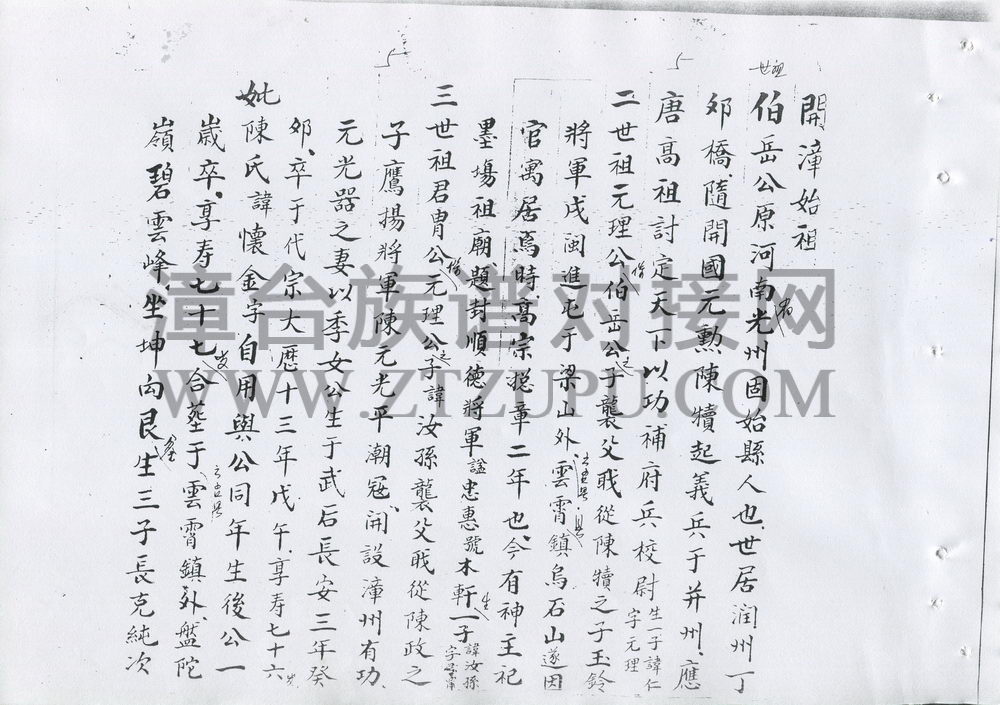 開漳始祖
世祖
伯岳公原河南光州固始縣人也、世居润州丁
卯橋、隨開國元勲陳犢起義兵于并州、應
唐高祖討定天下以功補府兵校尉生一子諱仁字元理
二世祖元理公伯岳公之子襲父戝從陳犢之子玉鈐
將軍戍閩進屯于梁山外雲霄鎮烏石山遂因
官寓居焉時高宗揔章二年也、今有神主祀
墨場祖廟、題封順德將軍諡忠惠號木軒生一子諱汝孫字君胄
三世祖君胄公元理公之子諱汝孫襲父戝從陳政之
子鷹揚將軍陳元光平潮冦、開設漳州有功、
元光器之妻以季女公生于武后長安三年癸
卯、卒于代宗大歷十三年戊午、享寿七十六岁
妣陳氏諱懷金字自用與公同年生後公一
歲卒、享寿七十七岁合塟于雲霄鎮外、盤陀
嶺碧雲峰、坐坤向艮生三子長克純次
5
5
漳台族谱对接网
WWW.ZTZUPU.COM